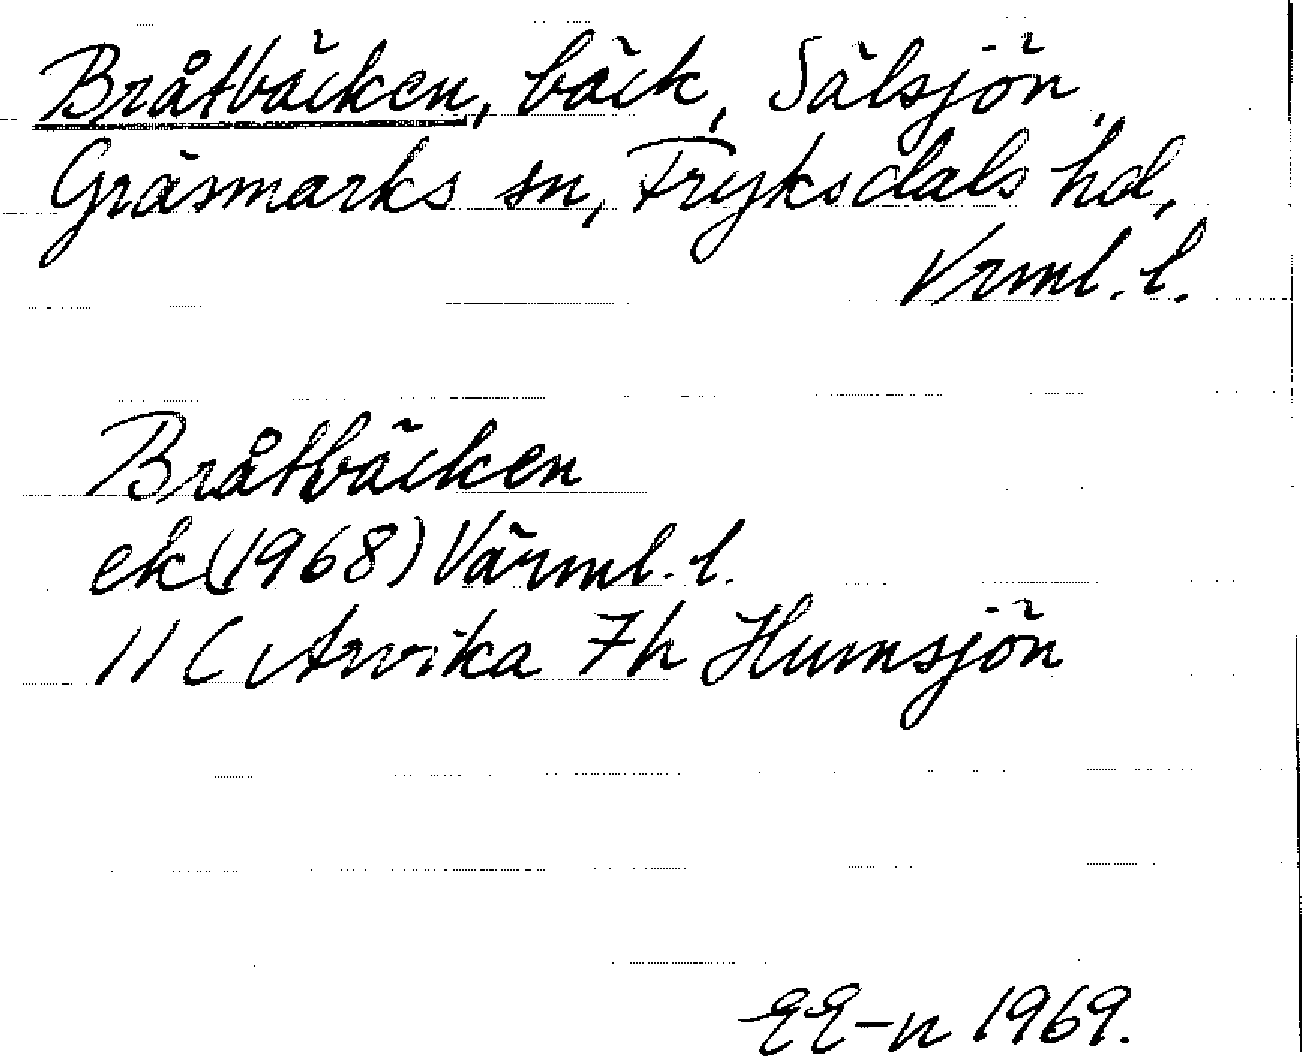 Bråtbäcken, bäck, Sälsjön,
Gräsmarks sn, Fryksdals hd,
Vrml. l.
Bråtbäcken
ek (1968) Värml. l.
11 C Arvika 7h Humsjön
EE-n 1969.